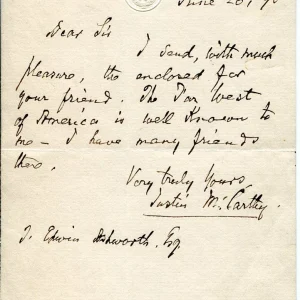 June 20, 90
Dear Sir
I send, with much
pleasure, the enclosed for
your friend. The Far West
of America is well known to
me – I have many friends
there.
Very truly yours,
Justin McCarthy.
J. Edwin Ashworth, Esq